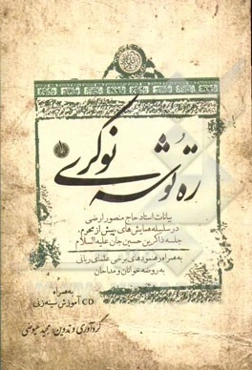 ره توشه نوکری
بیانات استاد حاج منصور ارضی
در سلسله همایش‌های پیش از محرم،
جلسه ذاکرین حسین جان علیه السلام
به همراه رهنمودهای برخی علمای ربانی
به روضه خوانان و مداحان
به همراه
CD آموزش سینه زنی
گردآوری و تدوین: مجید